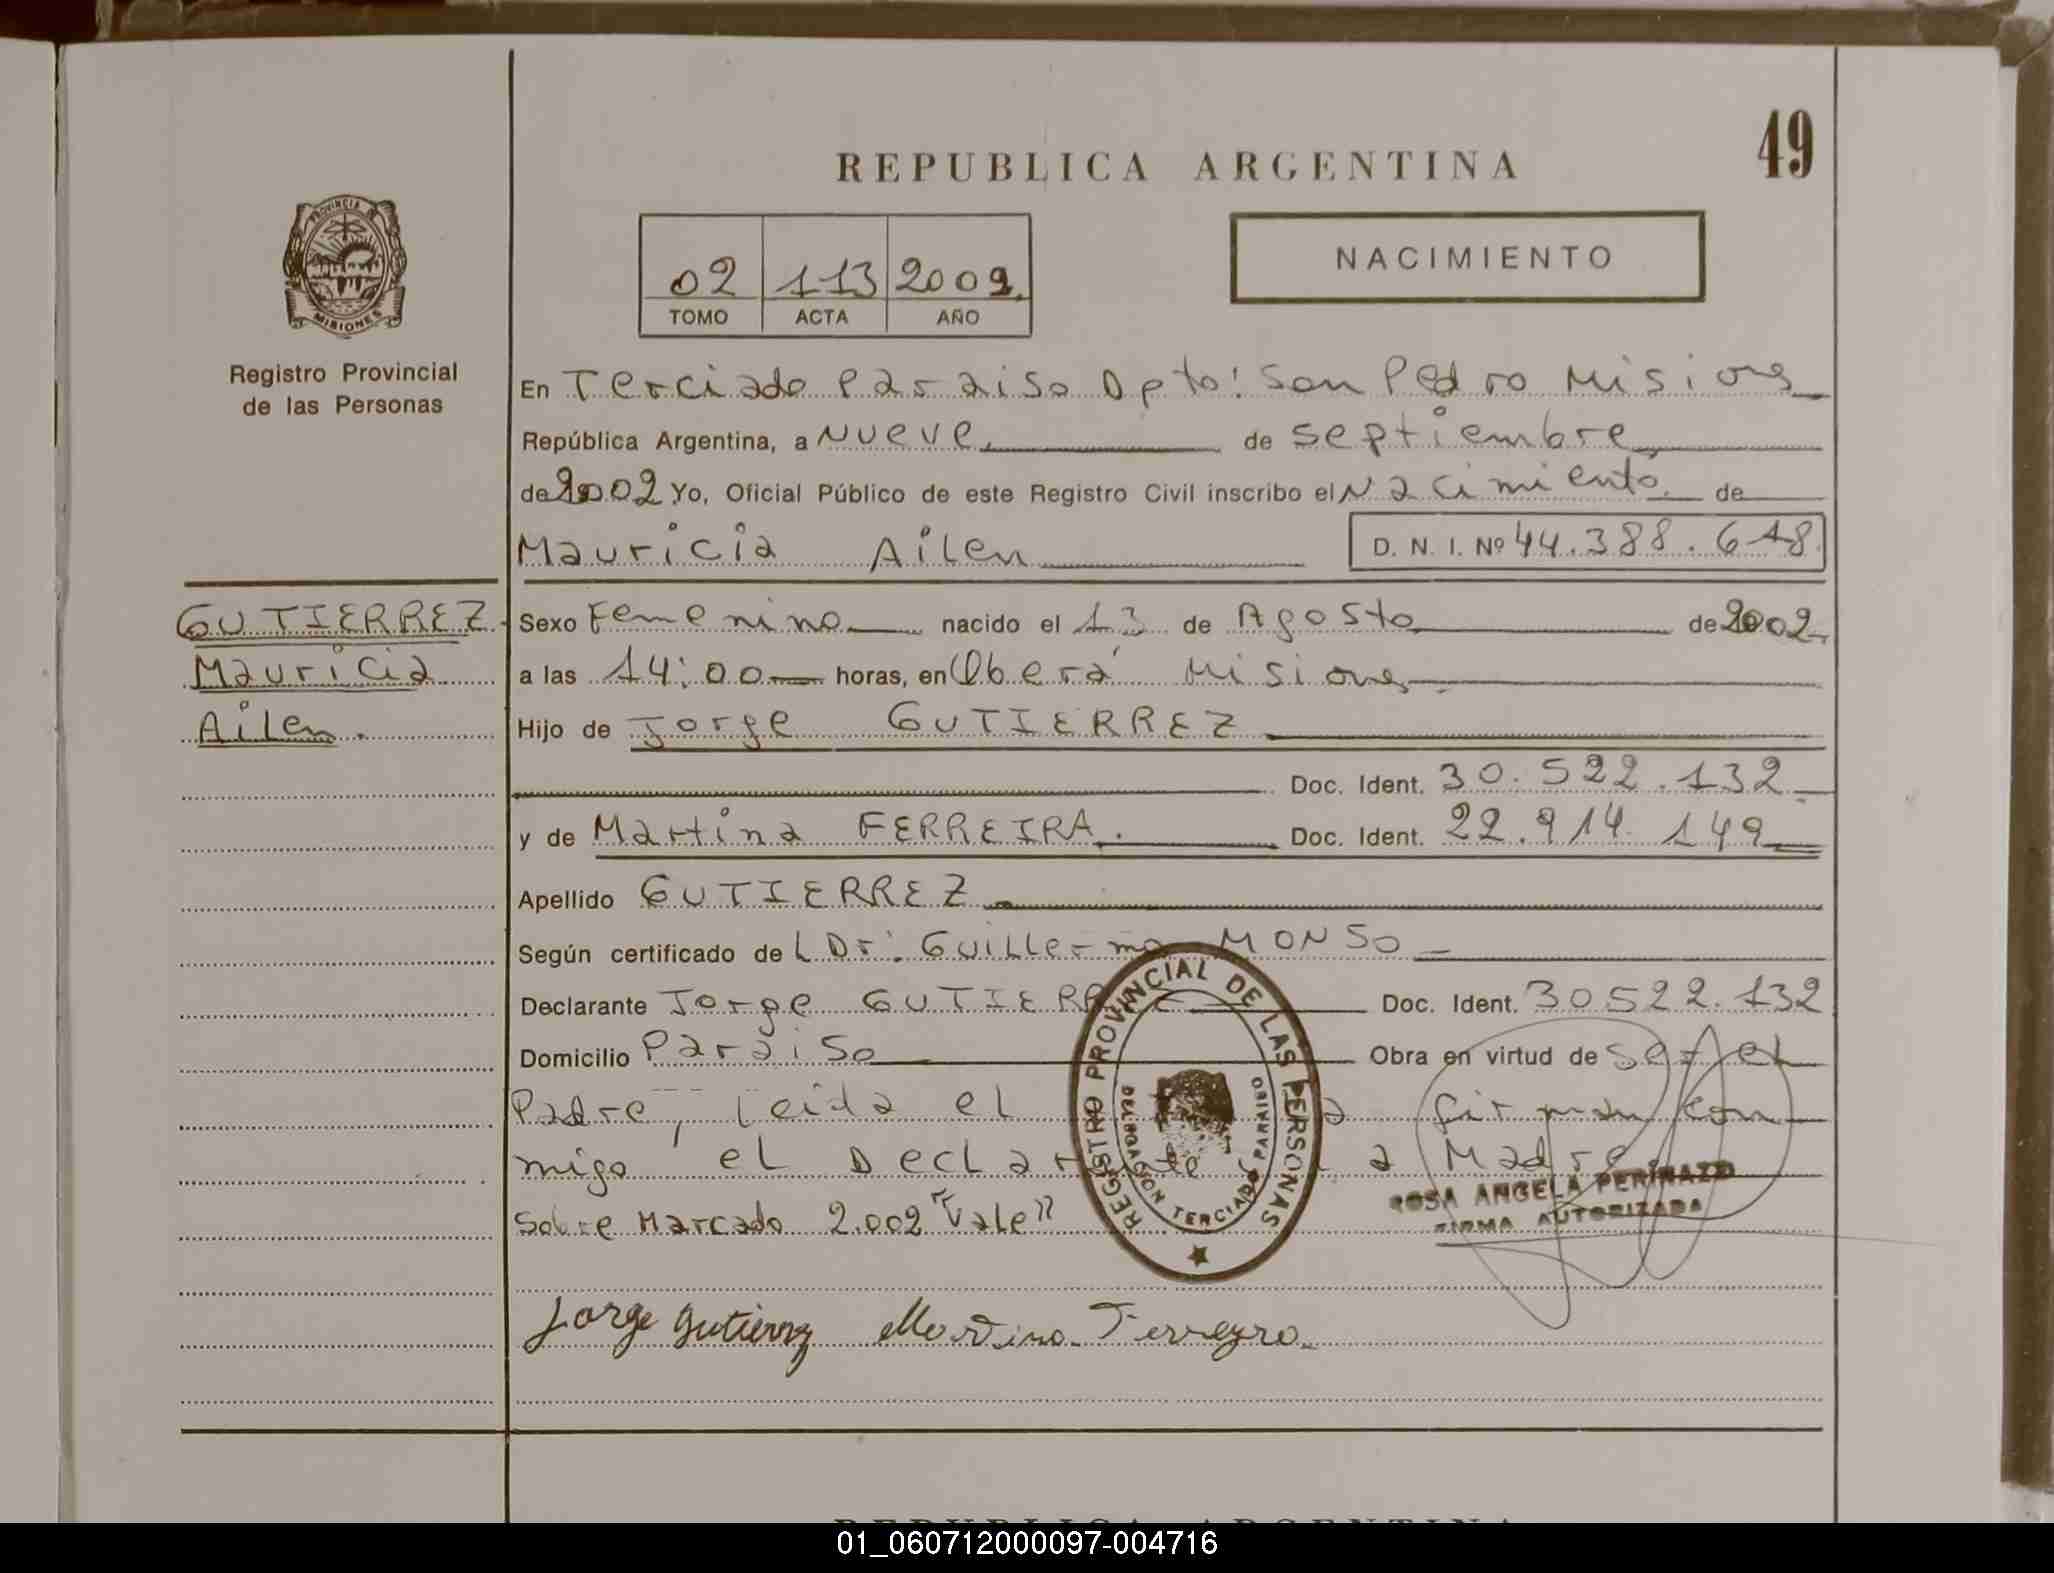 49
REPUBLICA ARGENTINA
NACIMIENTO
02 113 2002.
TOMO ACTA AÑO
PROVINCIA DE
MISIONES
Registro Provincial
de las Personas
En Terciado Paraiso Dpto: San Pedro Misiones
República Argentina, a Nueve. de septiembre
de 2002 Yo, Oficial Público de este Registro Civil inscribo el Nacimiento. de
Mauricia Ailen D. N. I. Nº 44.388.618
GUTIERREZ
Mauricia
Ailen.
Sexo Femenino nacido el 13 de Agosto de 2002.
a las 14:00 horas, en Oberá Misiones
Hijo de Jorge GUTIERREZ
Doc. Ident. 30.522.132
y de Martina FERREIRA. Doc. Ident. 22.914.149
Apellido GUTIERREZ
Según certificado de L Dr: Guillermo MONSO
Declarante Jorge GUTIERR Doc. Ident. 30522.132
Domicilio Paraiso Obra en virtud de ser el
Padre, Leida el a firman con
migo el Declarante a Madre.
Sobre Marcado 2.002 "Vale"
REGISTRO PROVINCIAL DE LAS PERSONAS
DELEGACION TERCIADO PARAISO
ROSA ANGELA PERINAZZO
FIRMA AUTORIZADA
Jorge Gutierrez Martina Ferreyra
REPUBLICA ARGENTINA
01_060712000097-004716